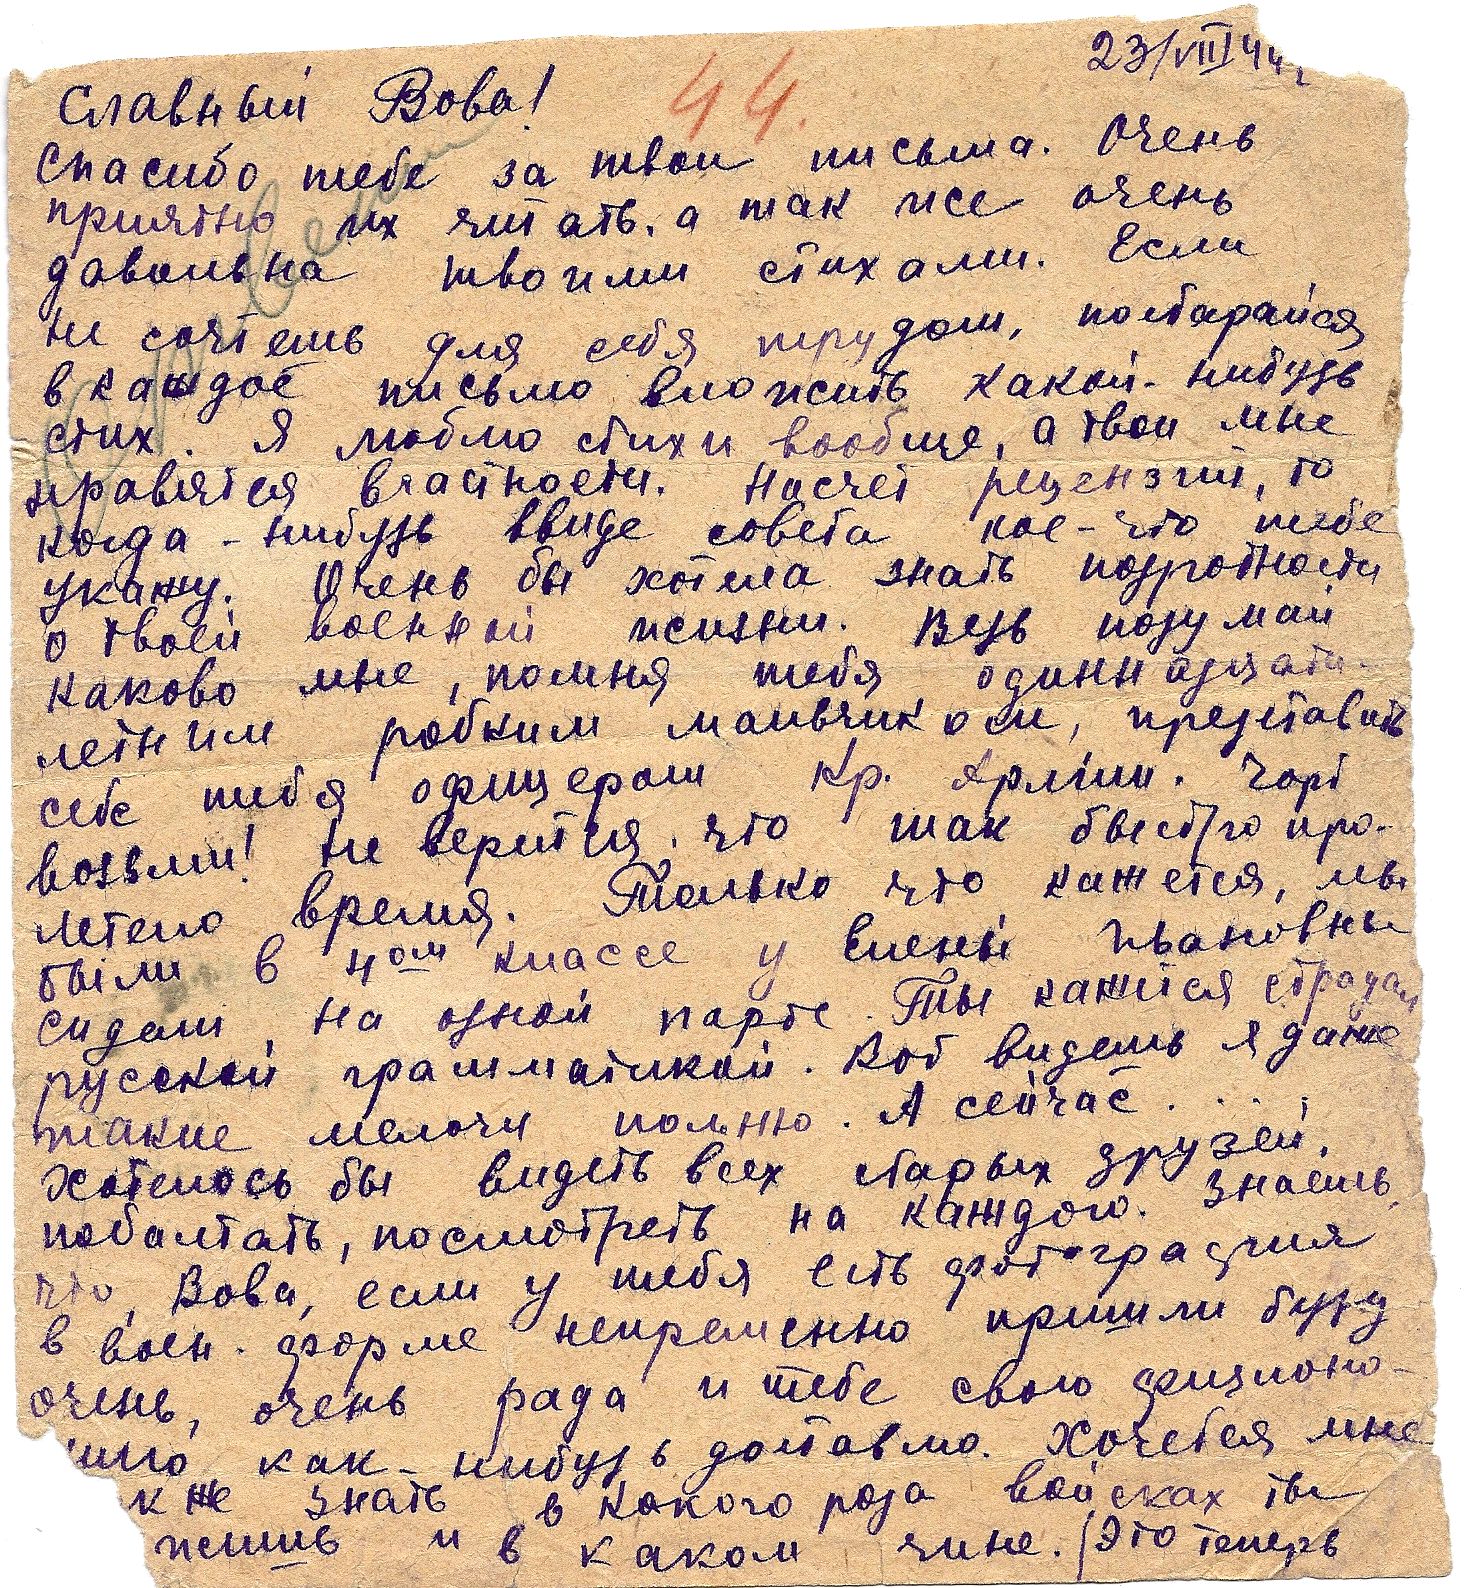 23/VIII 44
44.
Славный Вова!
Спасибо тебе за твои письма. Очень
приятно их читать, а так же очень
довольна твоими стихами. Если
не сочтешь для себя трудом, постарайся
в каждое письмо вложить какой-нибудь
стих. Я люблю стихи вообще, а твои мне
нравятся вчастности. Насчет рецензий, то
когда-нибудь ввиде совета кое-что тебе
укажу. Очень бы хотела знать подробности
о твоей военной жизни. Ведь подумай
каково мне, помня тебя одиннадцати-
летним робким мальчиком, представить
себе тебя офицером Кр. Армии. Чорт
возьми! Не верится, что так быстро про-
летело время. Только что кажется, мы
были в 4ом классе у Елены Ивановны
сидели на одной парте. Ты кажется страдал
русской грамматикой. Вот видешь я даже
такие мелочи помню. А сейчас . . . .
Хотелось бы видеть всех старых друзей,
поболтать, посмотреть на каждого. Знаешь
что, Вова, если у тебя есть фотография
в воен. форме непременно пришли буду
очень, очень рада и тебе свою физионо-
мию как-нибудь доставлю. Хочется мне
кже знать в какого рода войсках ты
жишь и в каком чине. (Это теперь